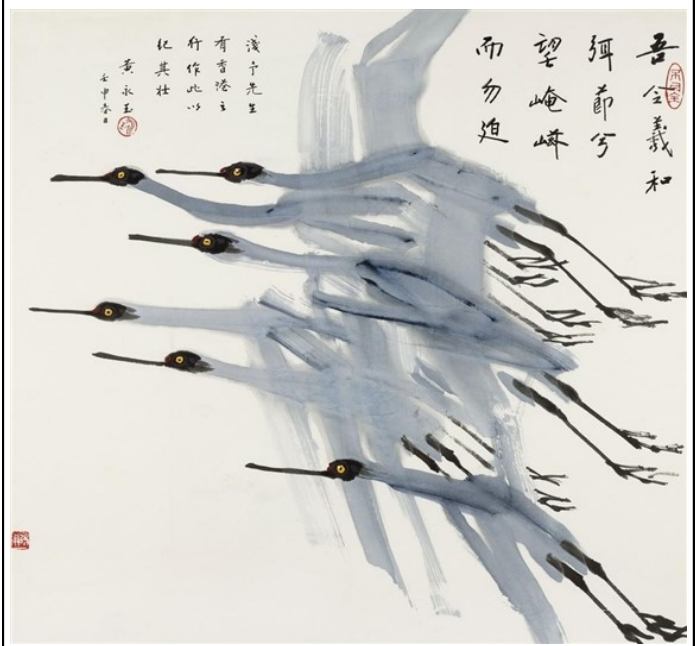 吾令羲和
弭節兮
望崦嵫
而勿迫
淺予先生
有香港之
行作此以
紀其壯
黃永玉
壬申春日